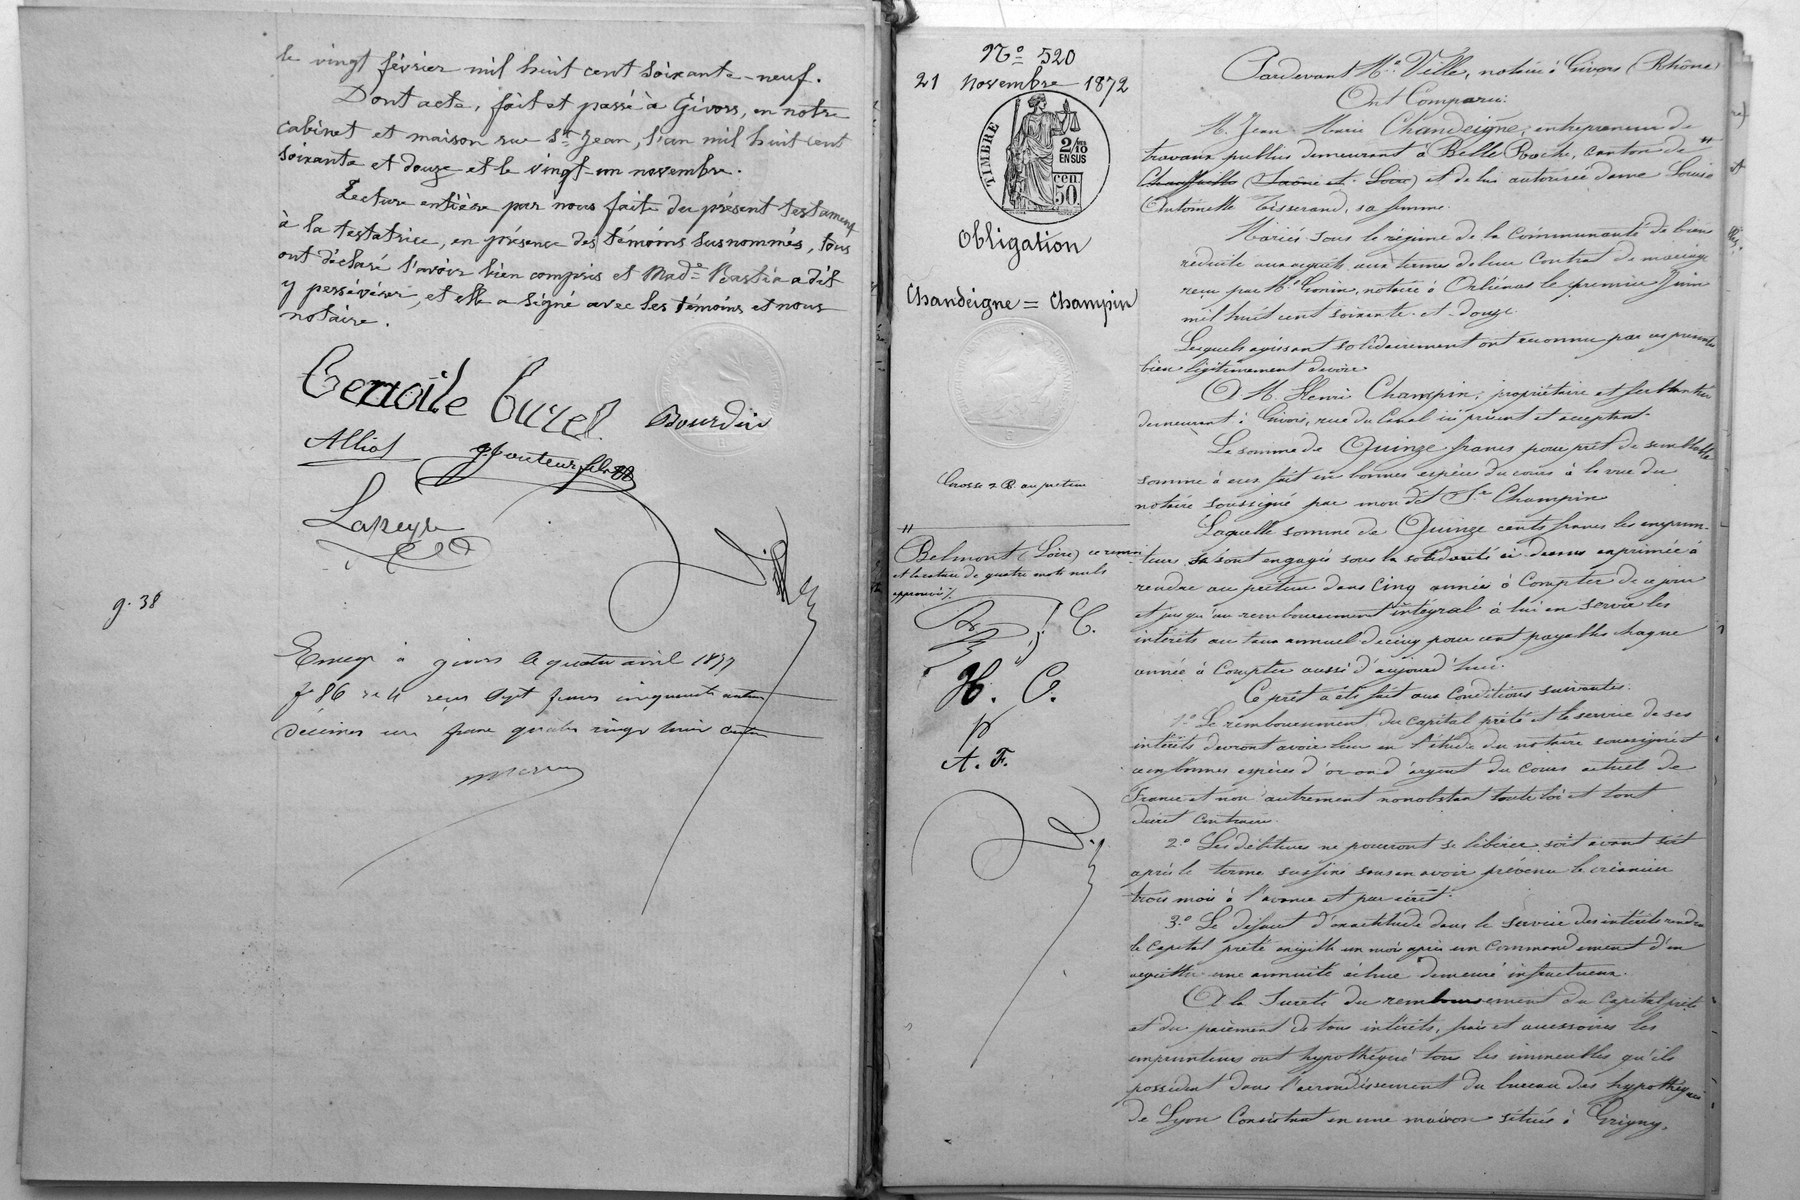 le vingt février mil huit cent soixante-neuf.
Dont acte, fait et passé à Givors, en notre
cabinet et maison rue St Jean, l'an mil huit cent
soixante et douze et le vingt-un novembre.
Lecture entière par nous faite du présent testament
à la testatrice, en présence des témoins susnommés, tous
ont déclaré l'avoir bien compris et Made Bastin a dit
y persévérer, et elle a signé avec les témoins et nous
notaire.
Curel
Bourdin
Alliot
Lapeyre
g. 38
à givors le quatre avril 1877
f 86 reçu sept francs cinquante
décimes un franc quatre vingt huit
No 520
21 Novembre 1872
TIMBRE
2/10
EN SUS
50 cen
Obligation
Chandeigne = Champin
Grosse
"
Belmont (Loire) ce renvoi
et la rature de quatre mots nuls
approuvés
C.
H. C.
A. F.
Pardevant Me Ville, notaire à Givors (Rhône)
Ont Comparu:
M. Jean Marie Chandeigne, entrepreneur de
travaux publics demeurant à Belle Roche, canton de "
Chauffailles (Saône et Loire) et de lui autorisée dame Louise
Antoinette Tisserand, sa femme.
Mariés sous le régime de la Communauté de biens
réduite aux acquêts aux termes de leur Contrat de mariage
reçu par Me Gonin, notaire à Orliénas le premier Juin
mil huit cent soixante-et-douze
Lesquels agissant solidairement ont reconnu par ces présentes
bien légitimement devoir
A M. Henri Champin, propriétaire et ferblantier
demeurant à Givors, rue du Canal ici présent et acceptant.
La somme de Quinze francs pour prêt de semblable
somme à eux fait en bonnes espèces du cours à la vue du
notaire soussigné par mon dit Sr Champin
Laquelle somme de Quinze cents francs les emprun-
teurs se sont engagés sous la solidarité ci-dessus exprimée à
rendre au prêteur dans Cinq années à Compter de ce jour
et jusqu'au remboursement intégral à lui en servir les
intérêts au taux annuel de cinq pour cent payables chaque
année à Compter aussi d'aujourd'hui.
Ce prêt a été fait aux Conditions suivantes.
1o Le remboursement du capital prêté et le service de ses
intérêts devront avoir lieu en l'étude du notaire soussigné et
en bonnes espèces d'or ou d'argent du cours actuel de
France et non autrement nonobstant toute loi et tout
décret contraire.
2o Les débiteurs ne pourront se libérer soit avant soit
après le terme susfixé sans en avoir prévenu le créancier
trois mois à l'avance et par écrit.
3o Le défaut d'exactitude dans le service des intérêts rendra
le Capital prêté exigible un mois après un commandement d'en
acquitter une annuité échue demeuré infructueux.
A la Sureté du remboursement du Capital prêté
et du paiement de tous intérêts, frais et accessoires les
emprunteurs ont hypothéqué tous les immeubles qu'ils
possèdent dans l'arrondissement du bureau des hypothèques
de Lyon Consistant en une maison située à Grigny,